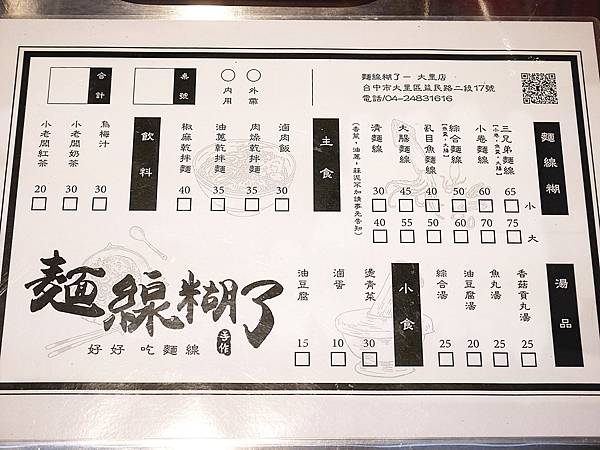 麵線糊了－ 大里店
台中市大里區益民路二段17號
電話/04-24831616
外帶
內用
桌號
合計
麵線糊
三兄弟麵線
(小卷,魚囊,大腸)
小 65
大 75
小卷麵線
60
70
綜合麵線
(魚囊,大腸)
50
60
虱目魚麵線
40
50
大腸麵線
45
55
清麵線
30
40
(香菜,油蔥,蒜泥不加請事先告知)
主食
滷肉飯
30
肉燥乾拌麵
35
油蔥乾拌麵
35
椒麻乾拌麵
40
飲料
烏梅汁
30
小老闆奶茶
30
小老闆紅茶
20
湯品
香菇貢丸湯
25
魚丸湯
25
油豆腐湯
20
綜合湯
25
小食
燙青菜
30
滷蛋
10
油豆腐
15
麵線糊了
手作
好好吃麵線